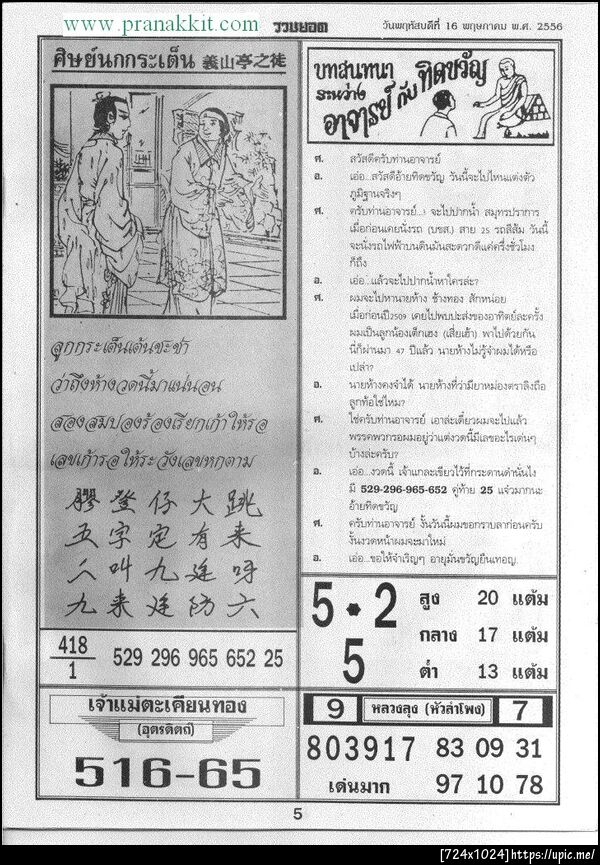 www.pranakkit.com
รวมยอด
วันพฤหัสบดีที่ 16 พฤษภาคม พ.ศ. 2556
ศิษย์นกกระเต็น 義山亭之徒
ลูกกระเต็นเต้นชะช่า
ว่าถึงห้างวดนี้มาแน่นอน
สองสมปองร้องเรียกเก้าให้รอ
เลขเก้ารอให้ระวังเลขหกตาม
膠登仔大跳
五字定有来
八叫九廷呀
九来廷防六
418
1
529 296 965 652 25
เจ้าแม่ตะเคียนทอง
(อุตรดิตถ์)
516-65
บทสนทนา
ระหว่าง
อาจารย์ กับ ทิดขวัญ
ศ. สวัสดีครับท่านอาจารย์
อ. เอ่อ...สวัสดีอ้ายทิดขวัญ วันนี้จะไปไหนแต่งตัว
ภูมิฐานจริงๆ
ศ. ครับท่านอาจารย์...! จะไปปากน้ำ สมุทรปราการ
เมื่อก่อนเคยนั่งรถ (บขส.) สาย 25 รถสีส้ม วันนี้
จะนั่งรถไฟฟ้าบนดินมันสะดวกดีแค่ครึ่งชั่วโมง
ก็ถึง
อ. เอ่อ...แล้วจะไปปากน้ำหาใครล่ะ?
ศ. ผมจะไปหานายห้าง ช้างทอง สักหน่อย
เมื่อก่อนปี2509 เคยไปพบปะส่งของอาทิตย์ละครั้ง
ผมเป็นลูกน้องเต็กเฮง (เสี่ยเฮ้า) พาไปด้วยกัน
นี่ก็ผ่านมา 47 ปีแล้ว นายห้างไม่รู้จำผมได้หรือ
เปล่า?
อ. นายห้างคงจำได้ นายห้างที่ว่ามียาหม่องตราลิงถือ
ลูกท้อใช่ไหม?
ศ. ใช่ครับท่านอาจารย์ เอาล่ะเดี๋ยวผมจะไปแล้ว
พรรคพวกรอผมอยู่ว่าแต่งวดนี้มีเลขอะไรเด่นๆ
บ้างล่ะครับ?
อ. เอ่อ...งวดนี้ เจ้าแกละเขียวไว้ที่กระดานดำนั่นไง
มี 529-296-965-652 คู่ท้าย 25 แจ่วมากนะ
อ้ายทิดขวัญ
ศ. ครับท่านอาจารย์ งั้นวันนี้ผมขอกราบลาก่อนครับ
งั้นงวดหน้าผมจะมาใหม่
อ. เอ่อ...ขอให้จำเริญๆ อายุมั่นขวัญยืนเทอญ.
5 * 2
5
สูง 20 แต้ม
กลาง 17 แต้ม
ต่ำ 13 แต้ม
9 หลวงลุง (หัวลำโพง) 7
803917 83 09 31
เด่นมาก 97 10 78
5
[724x1024]https://upic.me/